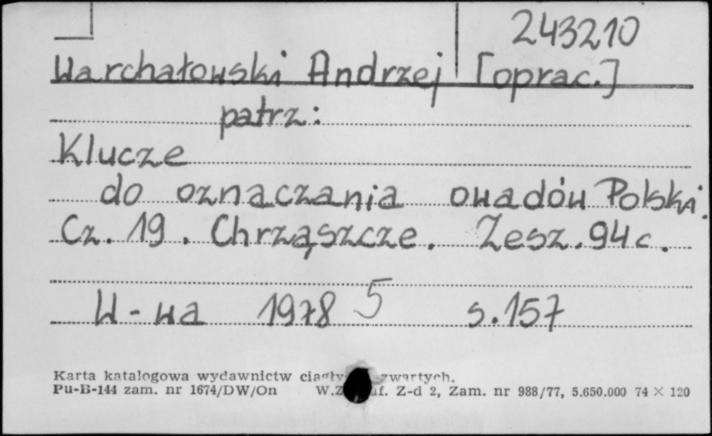 243210
Warchałowski Andrzej [oprac.]
patrz:
Klucze
do oznaczania owadów Polski.
Cz. 19. Chrząszcze. Zesz. 94c.
W-wa 1978 5 s. 157
Karta katalogowa wydawnictw zwartych.
Pu-B-144 zam. nr 1674/DW/On Z-d 2, Zam. nr 988/77, 5.650.000 74 × 120